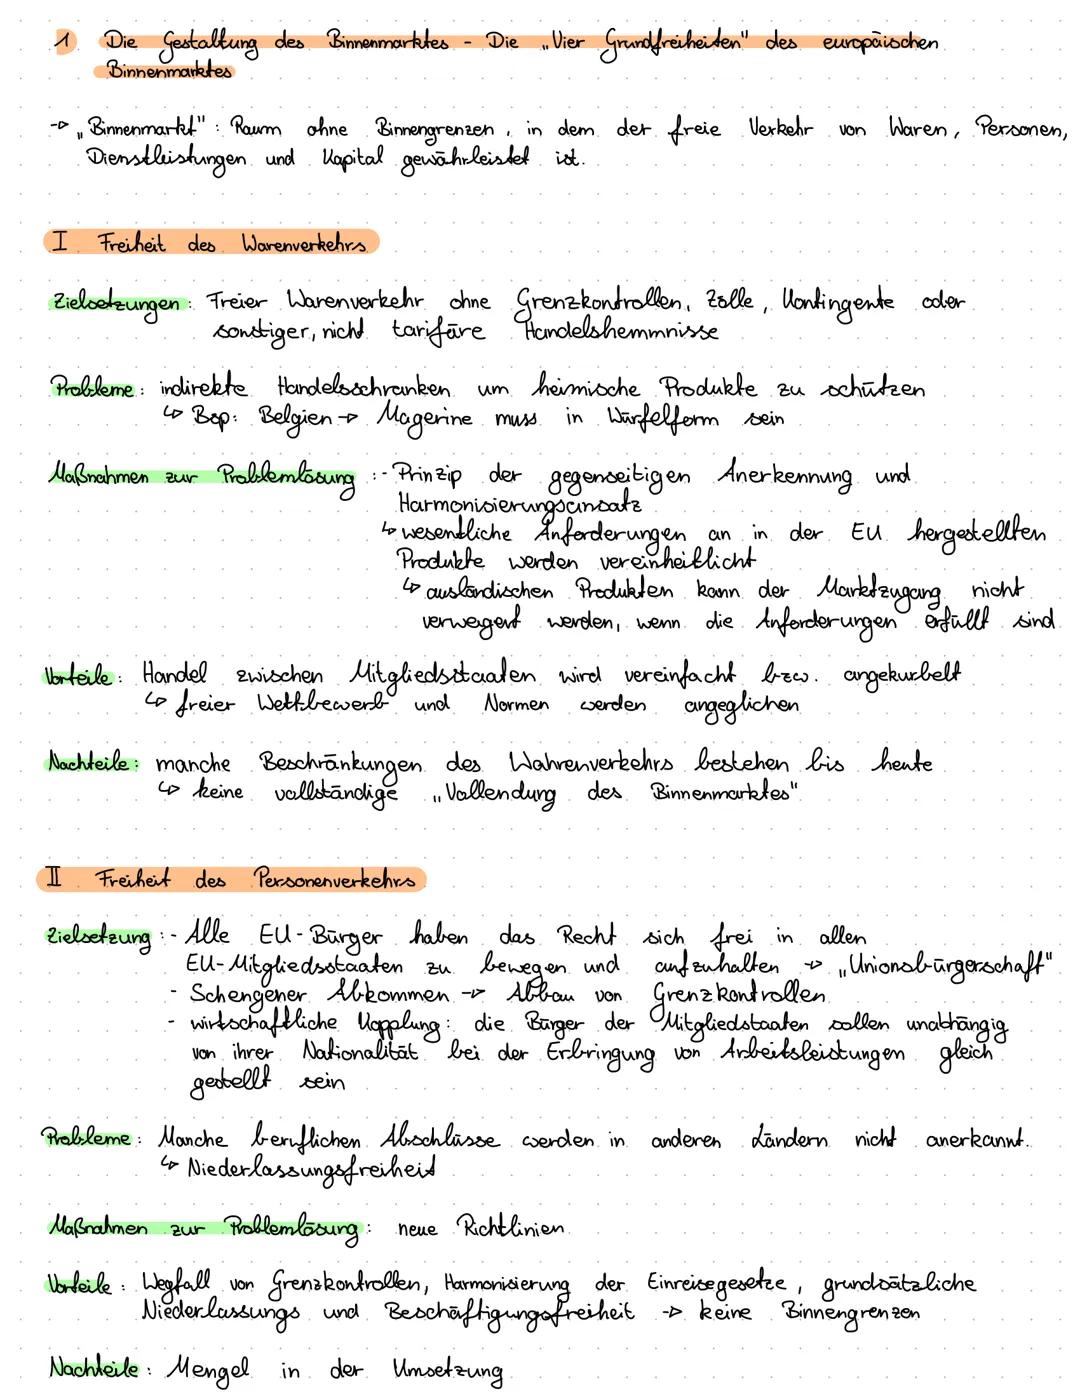 1 Die Gestaltung des Binnenmarktes - Die „Vier Grundfreiheiten" des europäischen
Binnenmarktes
-> „Binnenmarkt": Raum ohne Binnengrenzen, in dem der freie Verkehr von Waren, Personen,
Dienstleistungen und Kapital gewährleistet ist.
I Freiheit des Warenverkehrs
Zielsetzungen: Freier Warenverkehr ohne Grenzkontrollen, Zölle, Kontingente oder
sonstiger, nicht tarifäre Handelshemmnisse
Probleme: indirekte Handelsschranken um heimische Produkte zu schützen
↳ Bsp: Belgien -> Magerine muss in Würfelform sein
Maßnahmen zur Problemlösung :- Prinzip der gegenseitigen Anerkennung und
Harmonisierungsansatz
↳ wesentliche Anforderungen an in der EU hergestellten
Produkte werden vereinheitlicht
↳ ausländischen Produkten kann der Marktzugang nicht
verweigert werden, wenn die Anforderungen erfüllt sind
Vorteile: Handel zwischen Mitgliedsstaaten wird vereinfacht bzw. angekurbelt
↳ freier Wettbewerb und Normen werden angeglichen
Nachteile: manche Beschränkungen des Wahrenverkehrs bestehen bis heute
↳ keine vollständige „Vollendung des Binnenmarktes"
II Freiheit des Personenverkehrs
Zielsetzung :- Alle EU-Bürger haben das Recht sich frei in allen
EU-Mitgliedsstaaten zu bewegen und aufzuhalten -> „Unionsbürgerschaft"
- Schengener Abkommen -> Abbau von Grenzkontrollen
- wirtschaftliche Kopplung: die Bürger der Mitgliedstaaten sollen unabhängig
von ihrer Nationalität bei der Erbringung von Arbeitsleistungen gleich
gestellt sein
Probleme: Manche beruflichen Abschlüsse werden in anderen Ländern nicht anerkannt.
↳ Niederlassungsfreiheit
Maßnahmen zur Problemlösung: neue Richtlinien
Vorteile: Wegfall von Grenzkontrollen, Harmonisierung der Einreisegesetze, grundsätzliche
Niederlassungs und Beschäftigungsfreiheit -> keine Binnengrenzen
Nachteile: Mengel in der Umsetzung